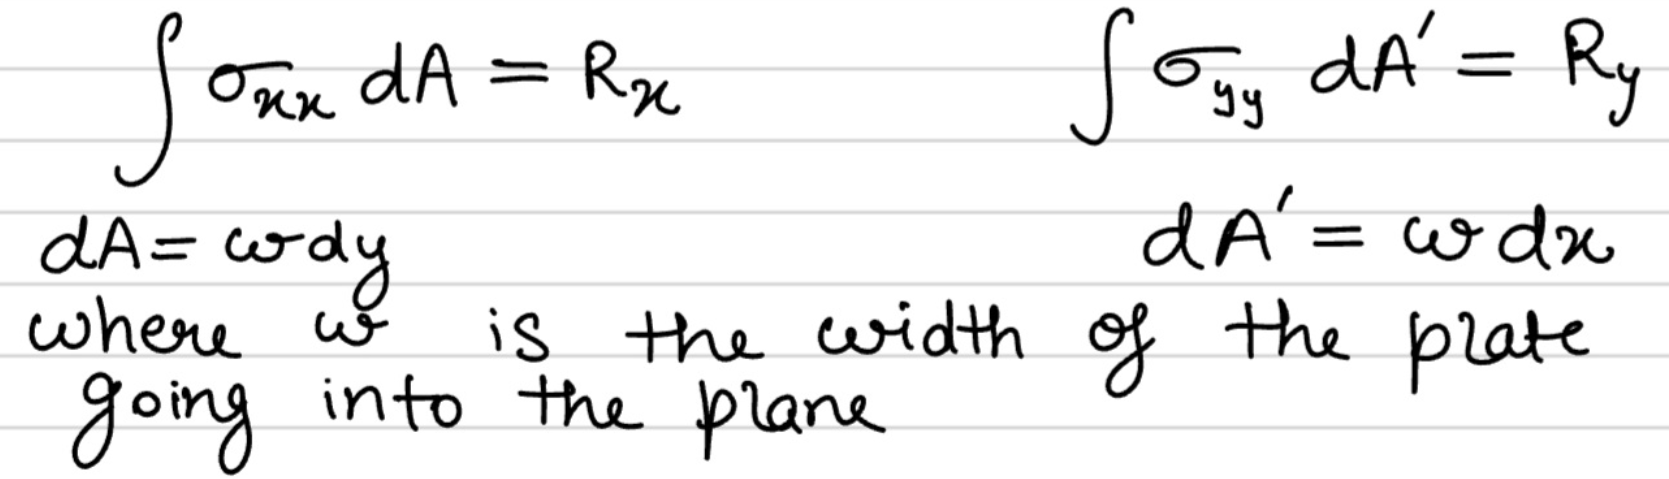 ∫ σ_xx dA = R_x    ∫ σ_yy dA′ = R_y
dA = w dy    dA′ = w dx
where w is the width of the plate
going into the plane